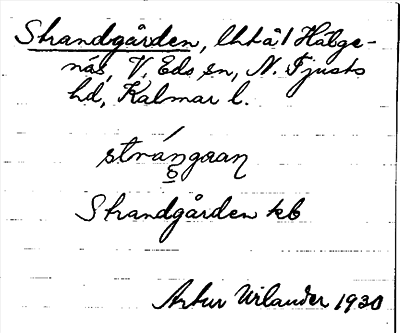 Strandgården, lht å 1 Helge-
näs, V. Eds sn, N. Tjusts
hd, Kalmar l.
stráng̥aɳ
Strandgården kb
Artur Wilander 1930